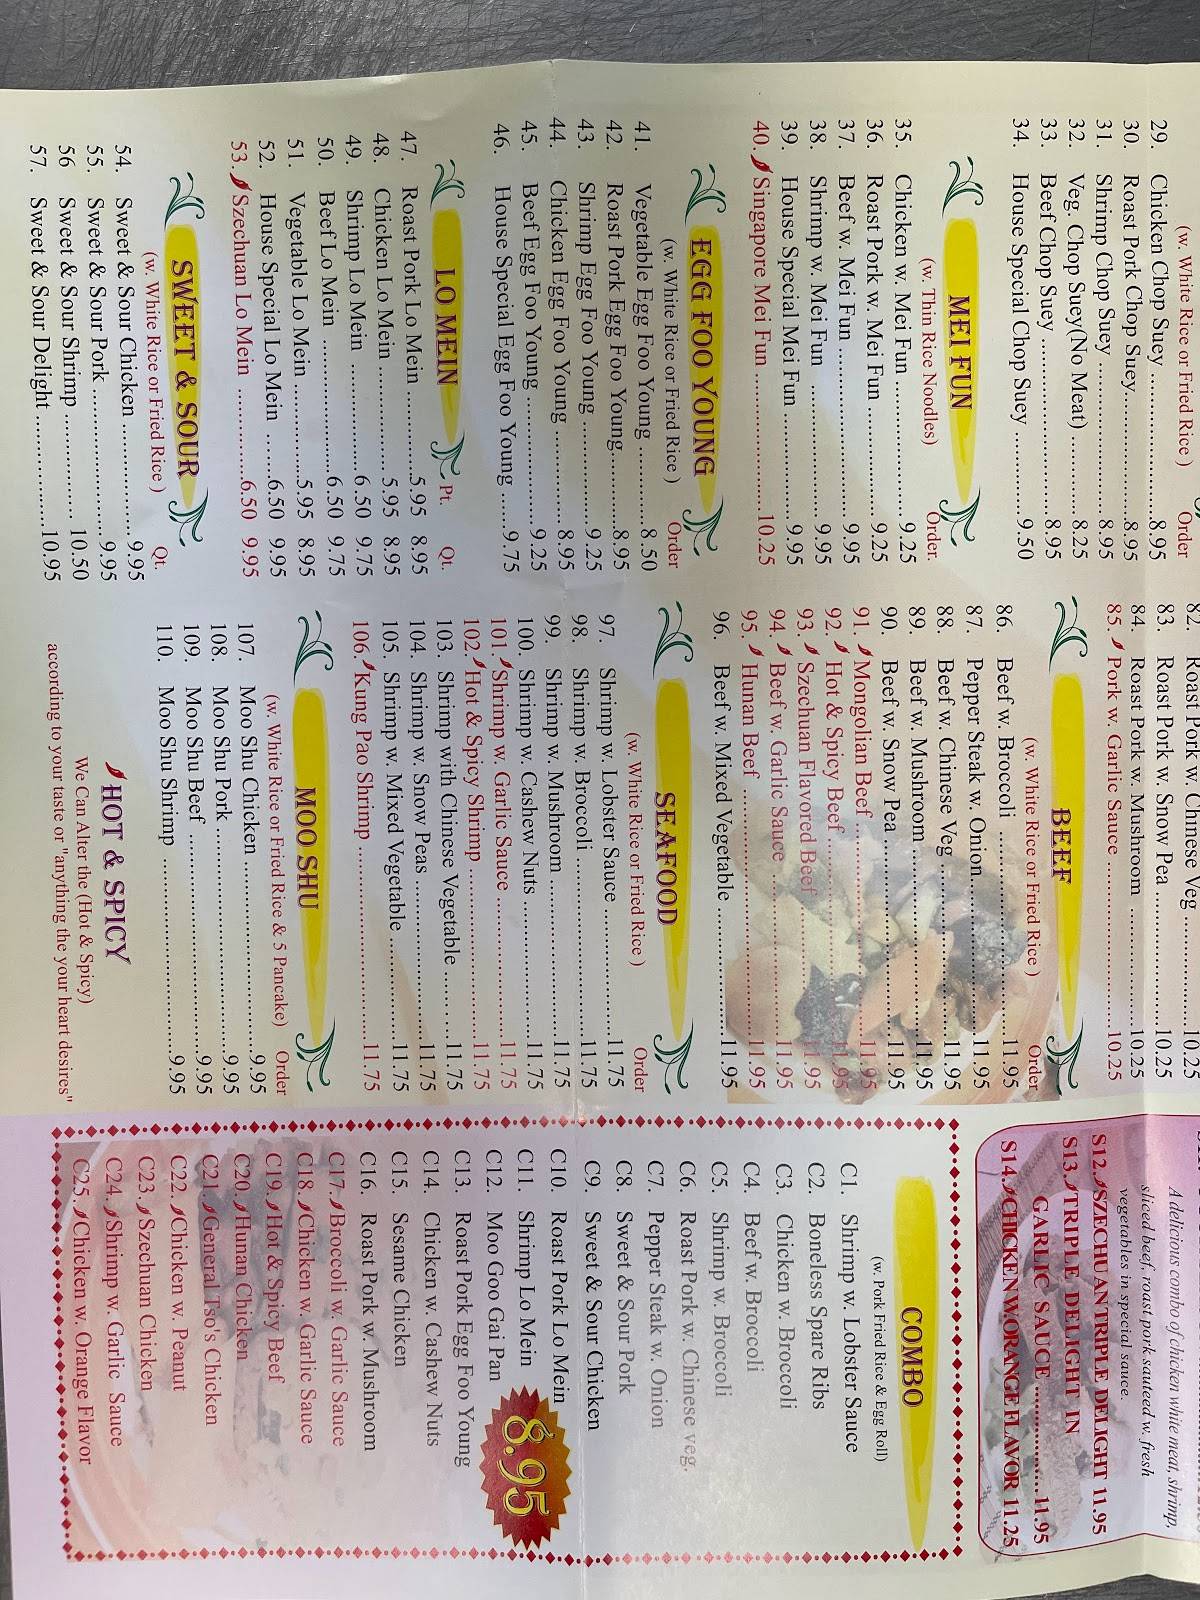 (w. White Rice or Fried Rice) Order
29. Chicken Chop Suey ............8.95
30. Roast Pork Chop Suey..........8.95
31. Shrimp Chop Suey ............. 8.95
32. Veg. Chop Suey(No Meat) ........8.25
33. Beef Chop Suey ................. 8.95
34. House Special Chop Suey ........9.50
MEI FUN
(w. Thin Rice Noodles) Order
35. Chicken w. Mei Fun ............ 9.25
36. Roast Pork w. Mei Fun .......... 9.25
37. Beef w. Mei Fun ................ 9.95
38. Shrimp w. Mei Fun ............. 9.95
39. House Special Mei Fun .......... 9.95
40. Singapore Mei Fun .............10.25
EGG FOO YOUNG
(w. White Rice or Fried Rice ) Order
41. Vegetable Egg Foo Young ........ 8.50
42. Roast Pork Egg Foo Young .......8.95
43. Shrimp Egg Foo Young .......... 9.25
44. Chicken Egg Foo Young .......... 8.95
45. Beef Egg Foo Young ............. 9.25
46. House Special Egg Foo Young .... 9.75
LO MEIN Pt. Qt.
47. Roast Pork Lo Mein .........5.95 8.95
48. Chicken Lo Mein ............ 5.95 8.95
49. Shrimp Lo Mein ............ 6.50 9.75
50. Beef Lo Mein ...............6.50 9.75
51. Vegetable Lo Mein ..........5.95 8.95
52. House Special Lo Mein ......6.50 9.95
53. Szechuan Lo Mein ..........6.50 9.95
SWEET & SOUR
(w. White Rice or Fried Rice ) Qt.
54. Sweet & Sour Chicken ........... 9.95
55. Sweet & Sour Pork .............. 9.95
56 Sweet & Sour Shrimp ............ 10.50
57. Sweet & Sour Delight ............10.95
82. Roast Pork w. Chinese Veg .......10.25
83. Roast Pork w. Snow Pea ......... 10.25
84. Roast Pork w. Mushroom ........ 10.25
85. Pork w. Garlic Sauce ............10.25
BEEF
(w. White Rice or Fried Rice ) Order
86. Beef w. Broccoli ............... 11.95
87. Pepper Steak w. Onion .......... 11.95
88. Beef w. Chinese Veg ............ 11.95
89. Beef w. Mushroom .............. 11.95
90. Beef w. Snow Pea ............... 11.95
91. Mongolian Beef ................ 11.95
92. Hot & Spicy Beef ............... 11.95
93. Szechuan Flavored Beef ......... 11.95
94. Beef w. Garlic Sauce ............ 11.95
95. Hunan Beef ................... 11.95
96. Beef w. Mixed Vegetable ........ 11.95
SEAFOOD
(w. White Rice or Fried Rice ) Order
97. Shrimp w. Lobster Sauce ........ 11.75
98. Shrimp w. Broccoli ............. 11.75
99. Shrimp w. Mushroom ............ 11.75
100. Shrimp w. Cashew Nuts ......... 11.75
101. Shrimp w. Garlic Sauce ......... 11.75
102. Hot & Spicy Shrimp ............ 11.75
103. Shrimp with Chinese Vegetable ... 11.75
104. Shrimp w. Snow Peas ............ 11.75
105. Shrimp w. Mixed Vegetable ...... 11.75
106. Kung Pao Shrimp ............... 11.75
MOO SHU
(w. White Rice or Fried Rice & 5 Pancake) Order
107. Moo Shu Chicken ............... 9.95
108. Moo Shu Pork .................. 9.95
109. Moo Shu Beef .................. 9.95
110. Moo Shu Shrimp ................ 9.95
HOT & SPICY
We Can Alter the (Hot & Spicy)
according to your taste or "anything the your heart desires"
A delicious combo of chicken white meat, shrimp,
sliced beef, roast pork sauteed w. fresh
vegetables in special sauce.
S12. SZECHUAN TRIPLE DELIGHT 11.95
S13. TRIPLE DELIGHT IN
GARLIC SAUCE ..............11.95
S14. CHICKEN W. ORANGE FLAVOR 11.25
COMBO
(w. Pork Fried Rice & Egg Roll)
C1. Shrimp w. Lobster Sauce
C2. Boneless Spare Ribs
C3. Chicken w. Broccoli
C4. Beef w. Broccoli
C5. Shrimp w. Broccoli
C6. Roast Pork w. Chinese veg.
C7. Pepper Steak w. Onion
C8. Sweet & Sour Pork
C9. Sweet & Sour Chicken
C10. Roast Pork Lo Mein
C11. Shrimp Lo Mein
C12. Moo Goo Gai Pan
C13. Roast Pork Egg Foo Young
C14. Chicken w. Cashew Nuts
C15. Sesame Chicken
C16. Roast Pork w. Mushroom
C17. Broccoli w. Garlic Sauce
C18. Chicken w. Garlic Sauce
C19. Hot & Spicy Beef
C20. Hunan Chicken
C21. General Tso's Chicken
C22. Chicken w. Peanut
C23. Szechuan Chicken
C24. Shrimp w. Garlic Sauce
C25. Chicken w. Orange Flavor
8.95